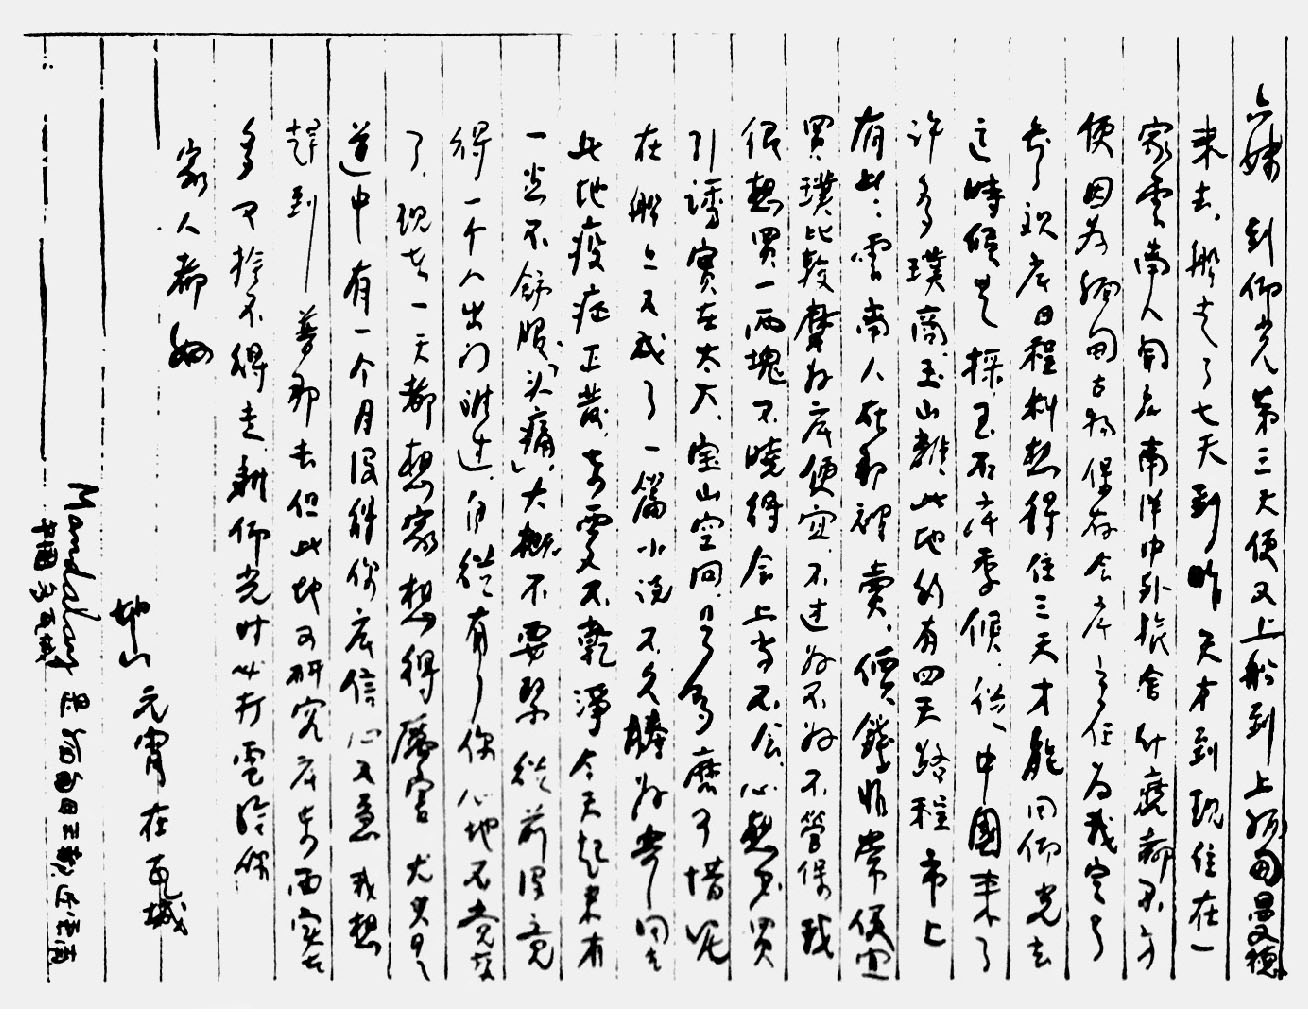 六妹 到仰光第三天便又上船到上緬甸曼德
来去，船走了七天到昨天才到現住在一
家雲南人開底南洋中外旅舍什麽都不方
便因为緬甸古物保存会底主任为我定了
底日程料想得住三天才能回仰光去
這時候是採玉石底季候，從中國来了
許多璞商玉山離此地約有四天路程市上
有些雲南人在那裡賣，價錢非常便宜
買璞比較摩好底便宜，不过好不好不管保我
很想買一兩塊不曉得会上当不会，心想不買
引誘實在太大，宝山空回是多麽可惜呢
在船上又成了一篇小说不久謄好寄回去
此地疫症正發，旁處又不乾淨今天起来有
一点不舒服「头痛」，大概不要緊從前没覚
得一个人出门難过，自從有了你心地不覚
了，現在一天都想家想得厲害尤其是
道中有一个月没得你底信心又急我想
趕到 蒲那去但此地可研究底东西实在
多又捨不得走，縣仰光时必打電给你
家人都好
地山 元宵在瓦城
Mandalay